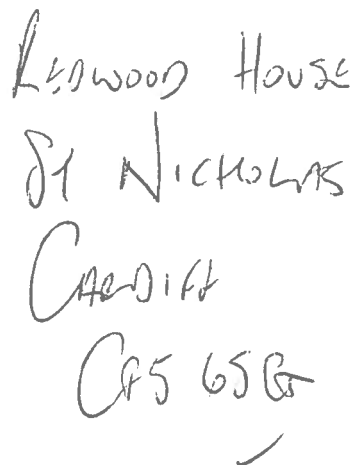 REDWOOD HOUSE
ST NICHOLAS
CARDIFF
CF5 6SG